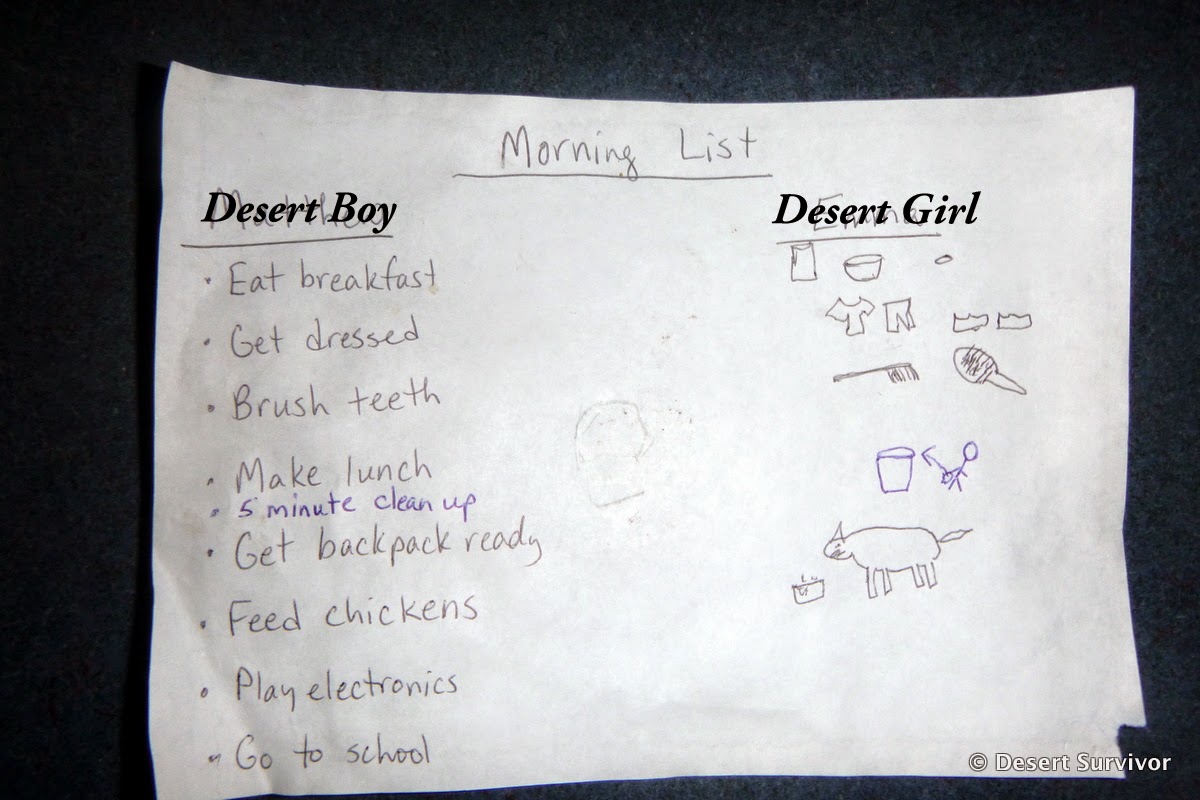 Morning List
Desert Boy
Desert Girl
• Eat breakfast
• Get dressed
• Brush teeth
• Make lunch
• 5 minute clean up
• Get backpack ready
• Feed chickens
• Play electronics
• Go to school
© Desert Survivor